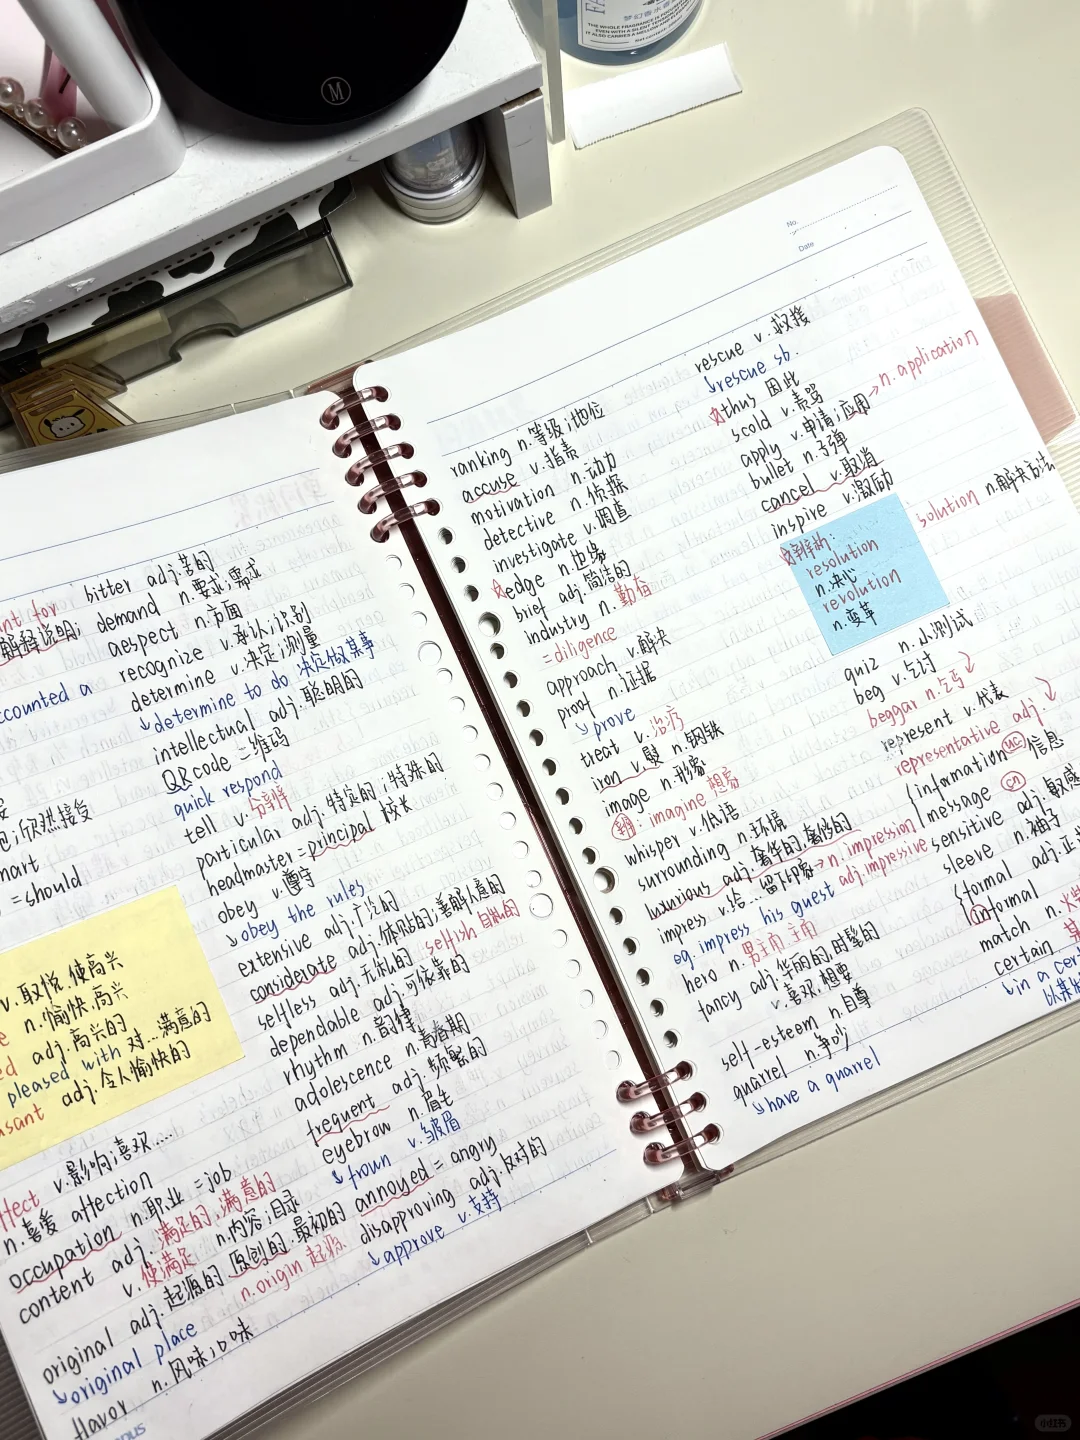 THE WHOLE FRAGRANCE IS
EVEN WITH A SILENT
IT ALSO CARRIES A MELLOW AND
M
No.
Date
bitter adj.苦的
demand n.要求;需求
aespect n.方面
recognize v.承认;识别
determine v.决定;测量
↳determine to do 决定做某事
intellectual adj.聪明的
QR code 二维码
quick respond
tell v.分辨
particular adj.特定的;特殊的
headmaster=principal 校长
obey v.遵守
↳obey the rules
extensive adj.广泛的
considerate adj.体贴的;善解人意的
selfless adj.无私的 selfish 自私的
dependable adj.可依靠的
rhythm n.韵律
adolescence n.青春期
frequent adj.频繁的
eyebrow n.眉毛
↳frown v.皱眉
annoyed = angry
disapproving adj.反对的
↳approve v.支持
解释说明;
ccounted a
;欣然接受
=should
v.取悦,使高兴
n.愉快,高兴
adj.高兴的
pleased with 对...满意的
asant adj.令人愉快的
ffect v.影响;喜欢....
n.喜爱 affection
occupation n.职业 =job
content adj.满足的,满意的
v.使满足 n.内容;目录
original adj.起源的,原创的,最初的
↳original place n.origin 起源
flavor n.风味;口味
ranking n.等级;地位
accuse v.指责
motivation n.动力
detective n.侦探
investigate v.调查
☆edge n.边缘
brief adj.简洁的
industry n.勤奋
=diligence
approach v.解决
proof n.证据
↳prove
treat v.治疗
iron v.熨 n.钢铁
image n.形象
辨: imagine 想象
whisper v.低语
surrounding n.环境
luxurious adj.奢华的,奢侈的
impress v.给...留下印象→n.impression
eg. impress his guest adj.impressive
hero n.男主角
fancy adj.华丽的,时髦的
v.喜欢,想要
self-esteem n.自尊
quarrel n.争吵
↳have a quarrel
rescue v.救援
↳rescue sb.
☆thus 因此
scold v.责骂
apply v.申请;应用→n.application
bullet n.子弹
cancel v.取消
inspire v.激励
☆辨析:
resolution
n.决心
revolution
n.变革
solution n.解决方法
quiz n.小测试
beg v.乞讨
beggar n.乞丐
represent v.代表
representative adj.
information uc 信息
message cn
sensitive adj.敏感
sleeve n.袖子
formal adj.正
informal
match n.火柴
certain
↳in a cer
小红书